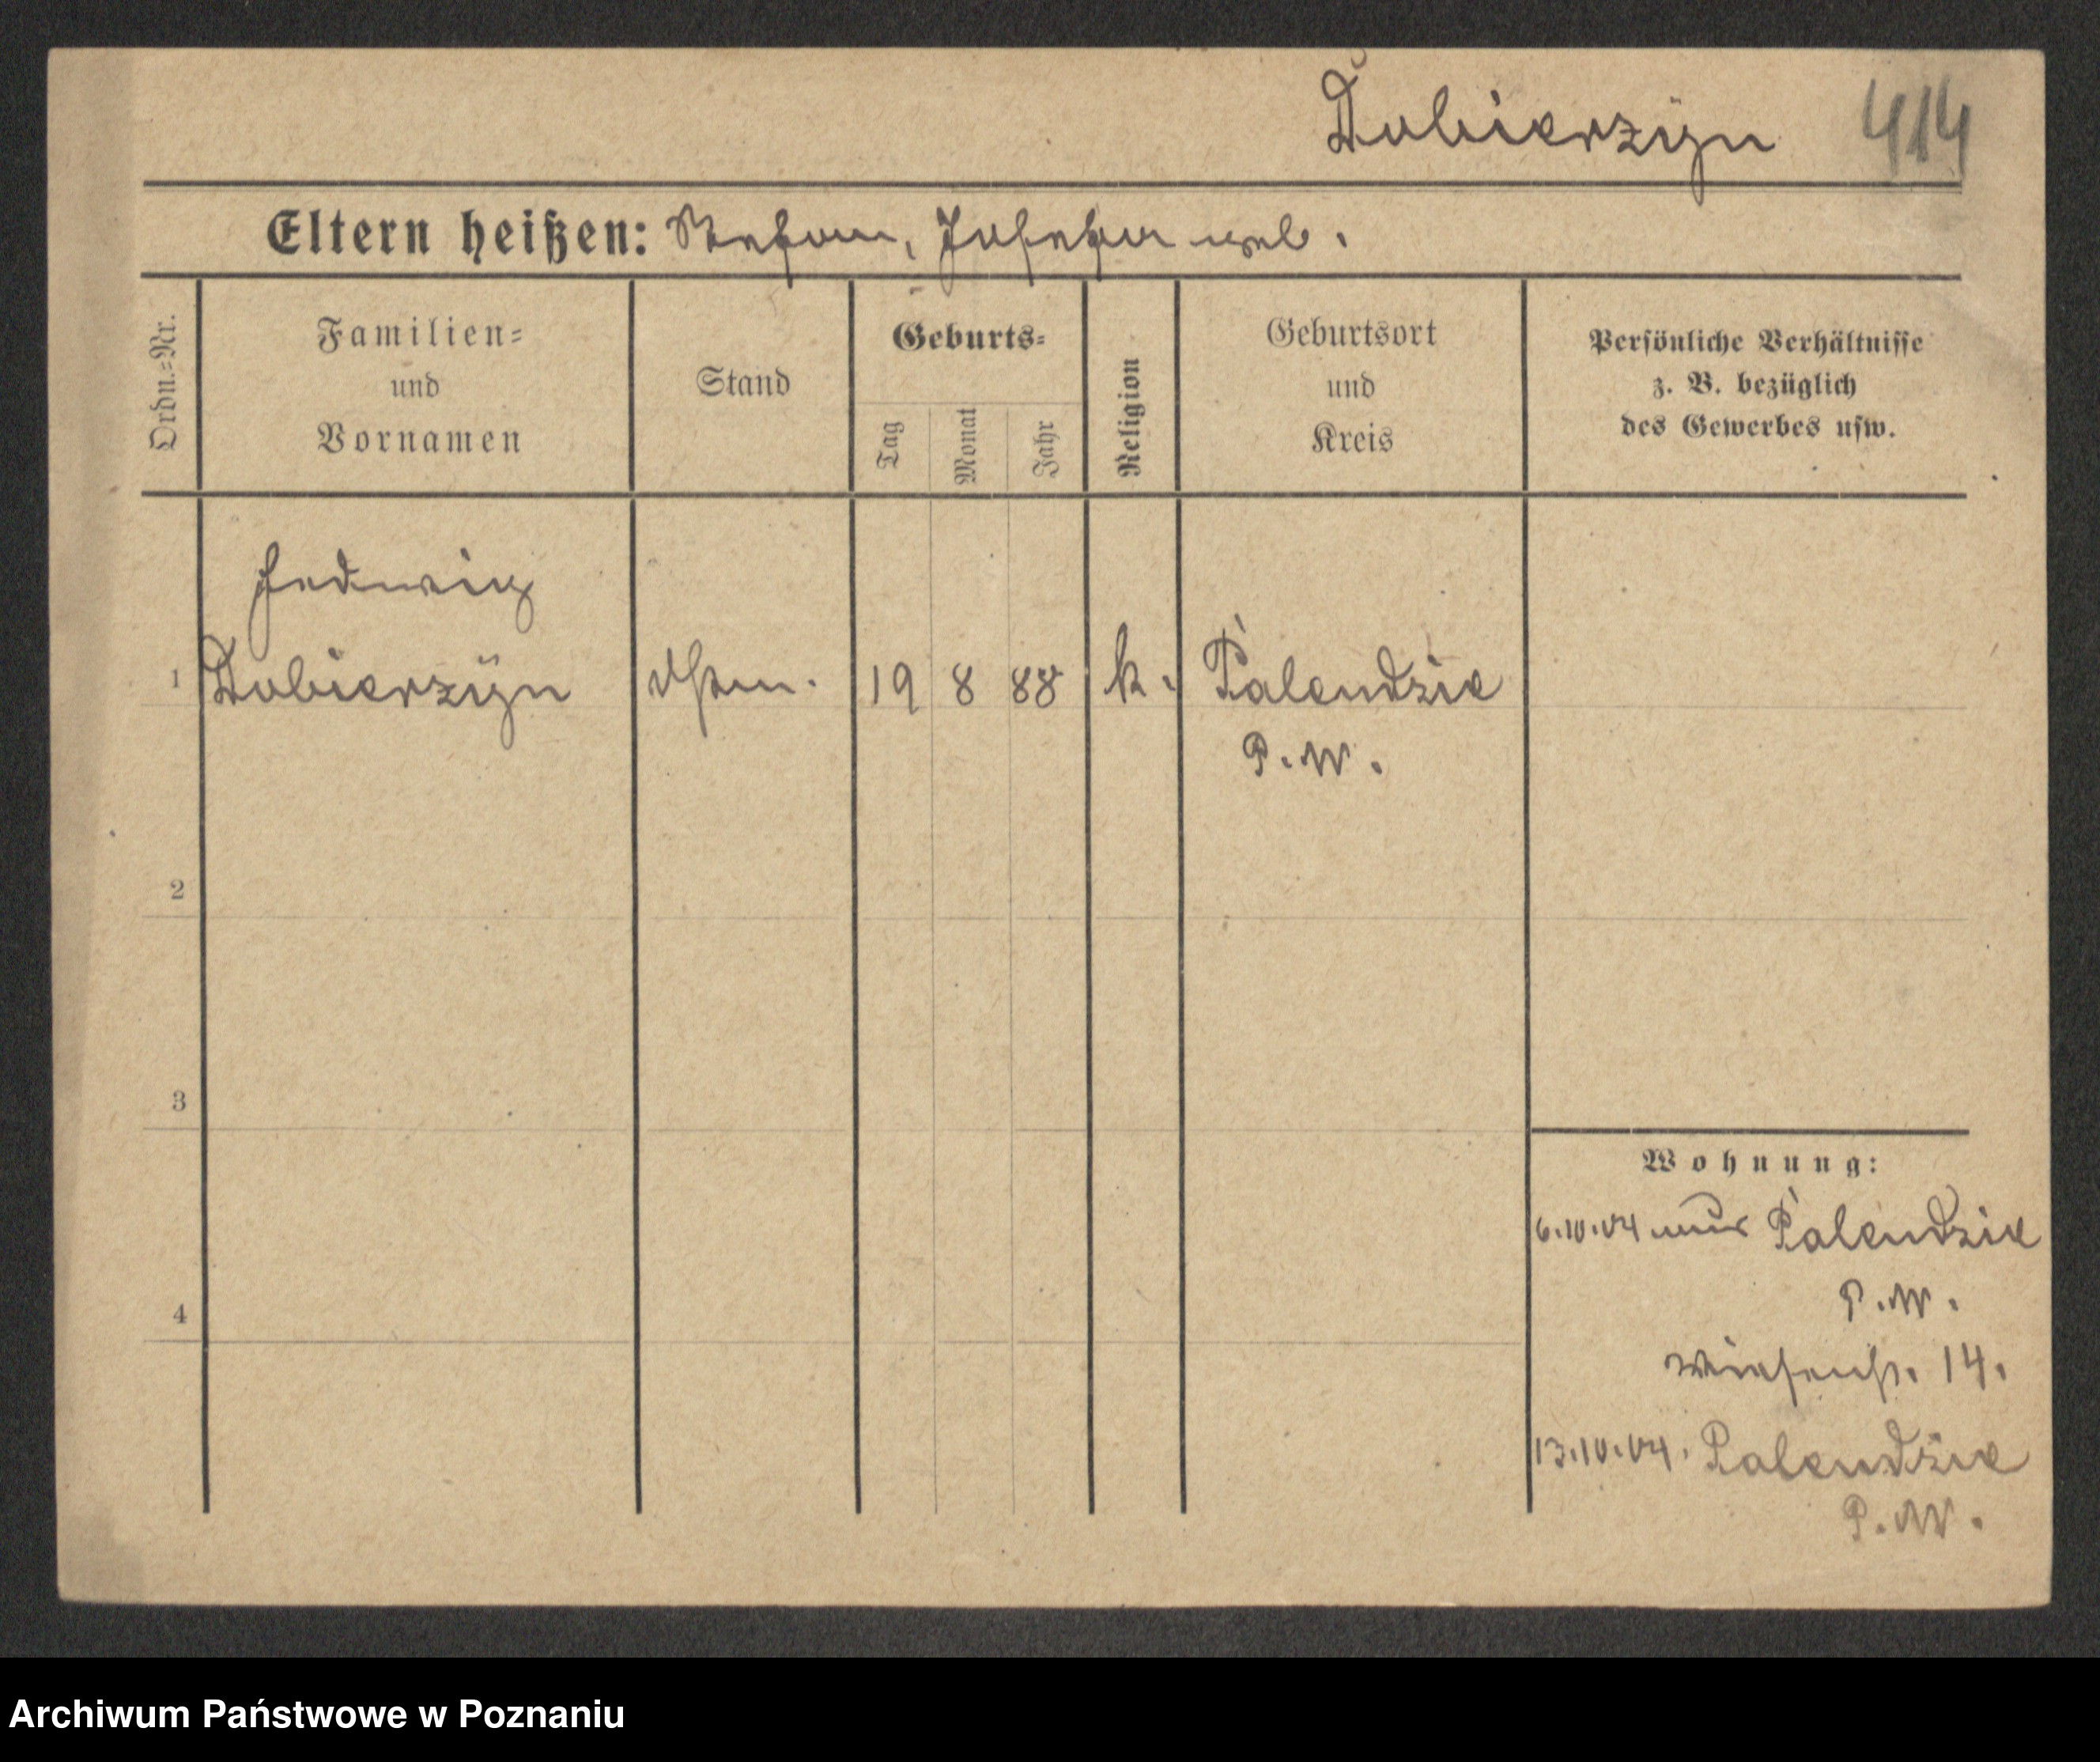 Dobierzyn 414
Eltern heißen: Stefan, Josefa geb.
Ordn.=Nr.
Familien=
und
Vornamen
Stand
Geburts=
Tag
Monat
Jahr
Religion
Geburtsort
und
Kreis
Persönliche Verhältnisse
z. B. bezüglich
des Gewerbes usw.
Hedwig
1 Dobierzyn 19 8 88 k. Palendzie
P.W.
2
3
4
Wohnung:
6.10.04 aus Palendzie
P.W.
Wiesenstr. 14.
13.10.04. Palendzie
P.W.
Archiwum Państwowe w Poznaniu